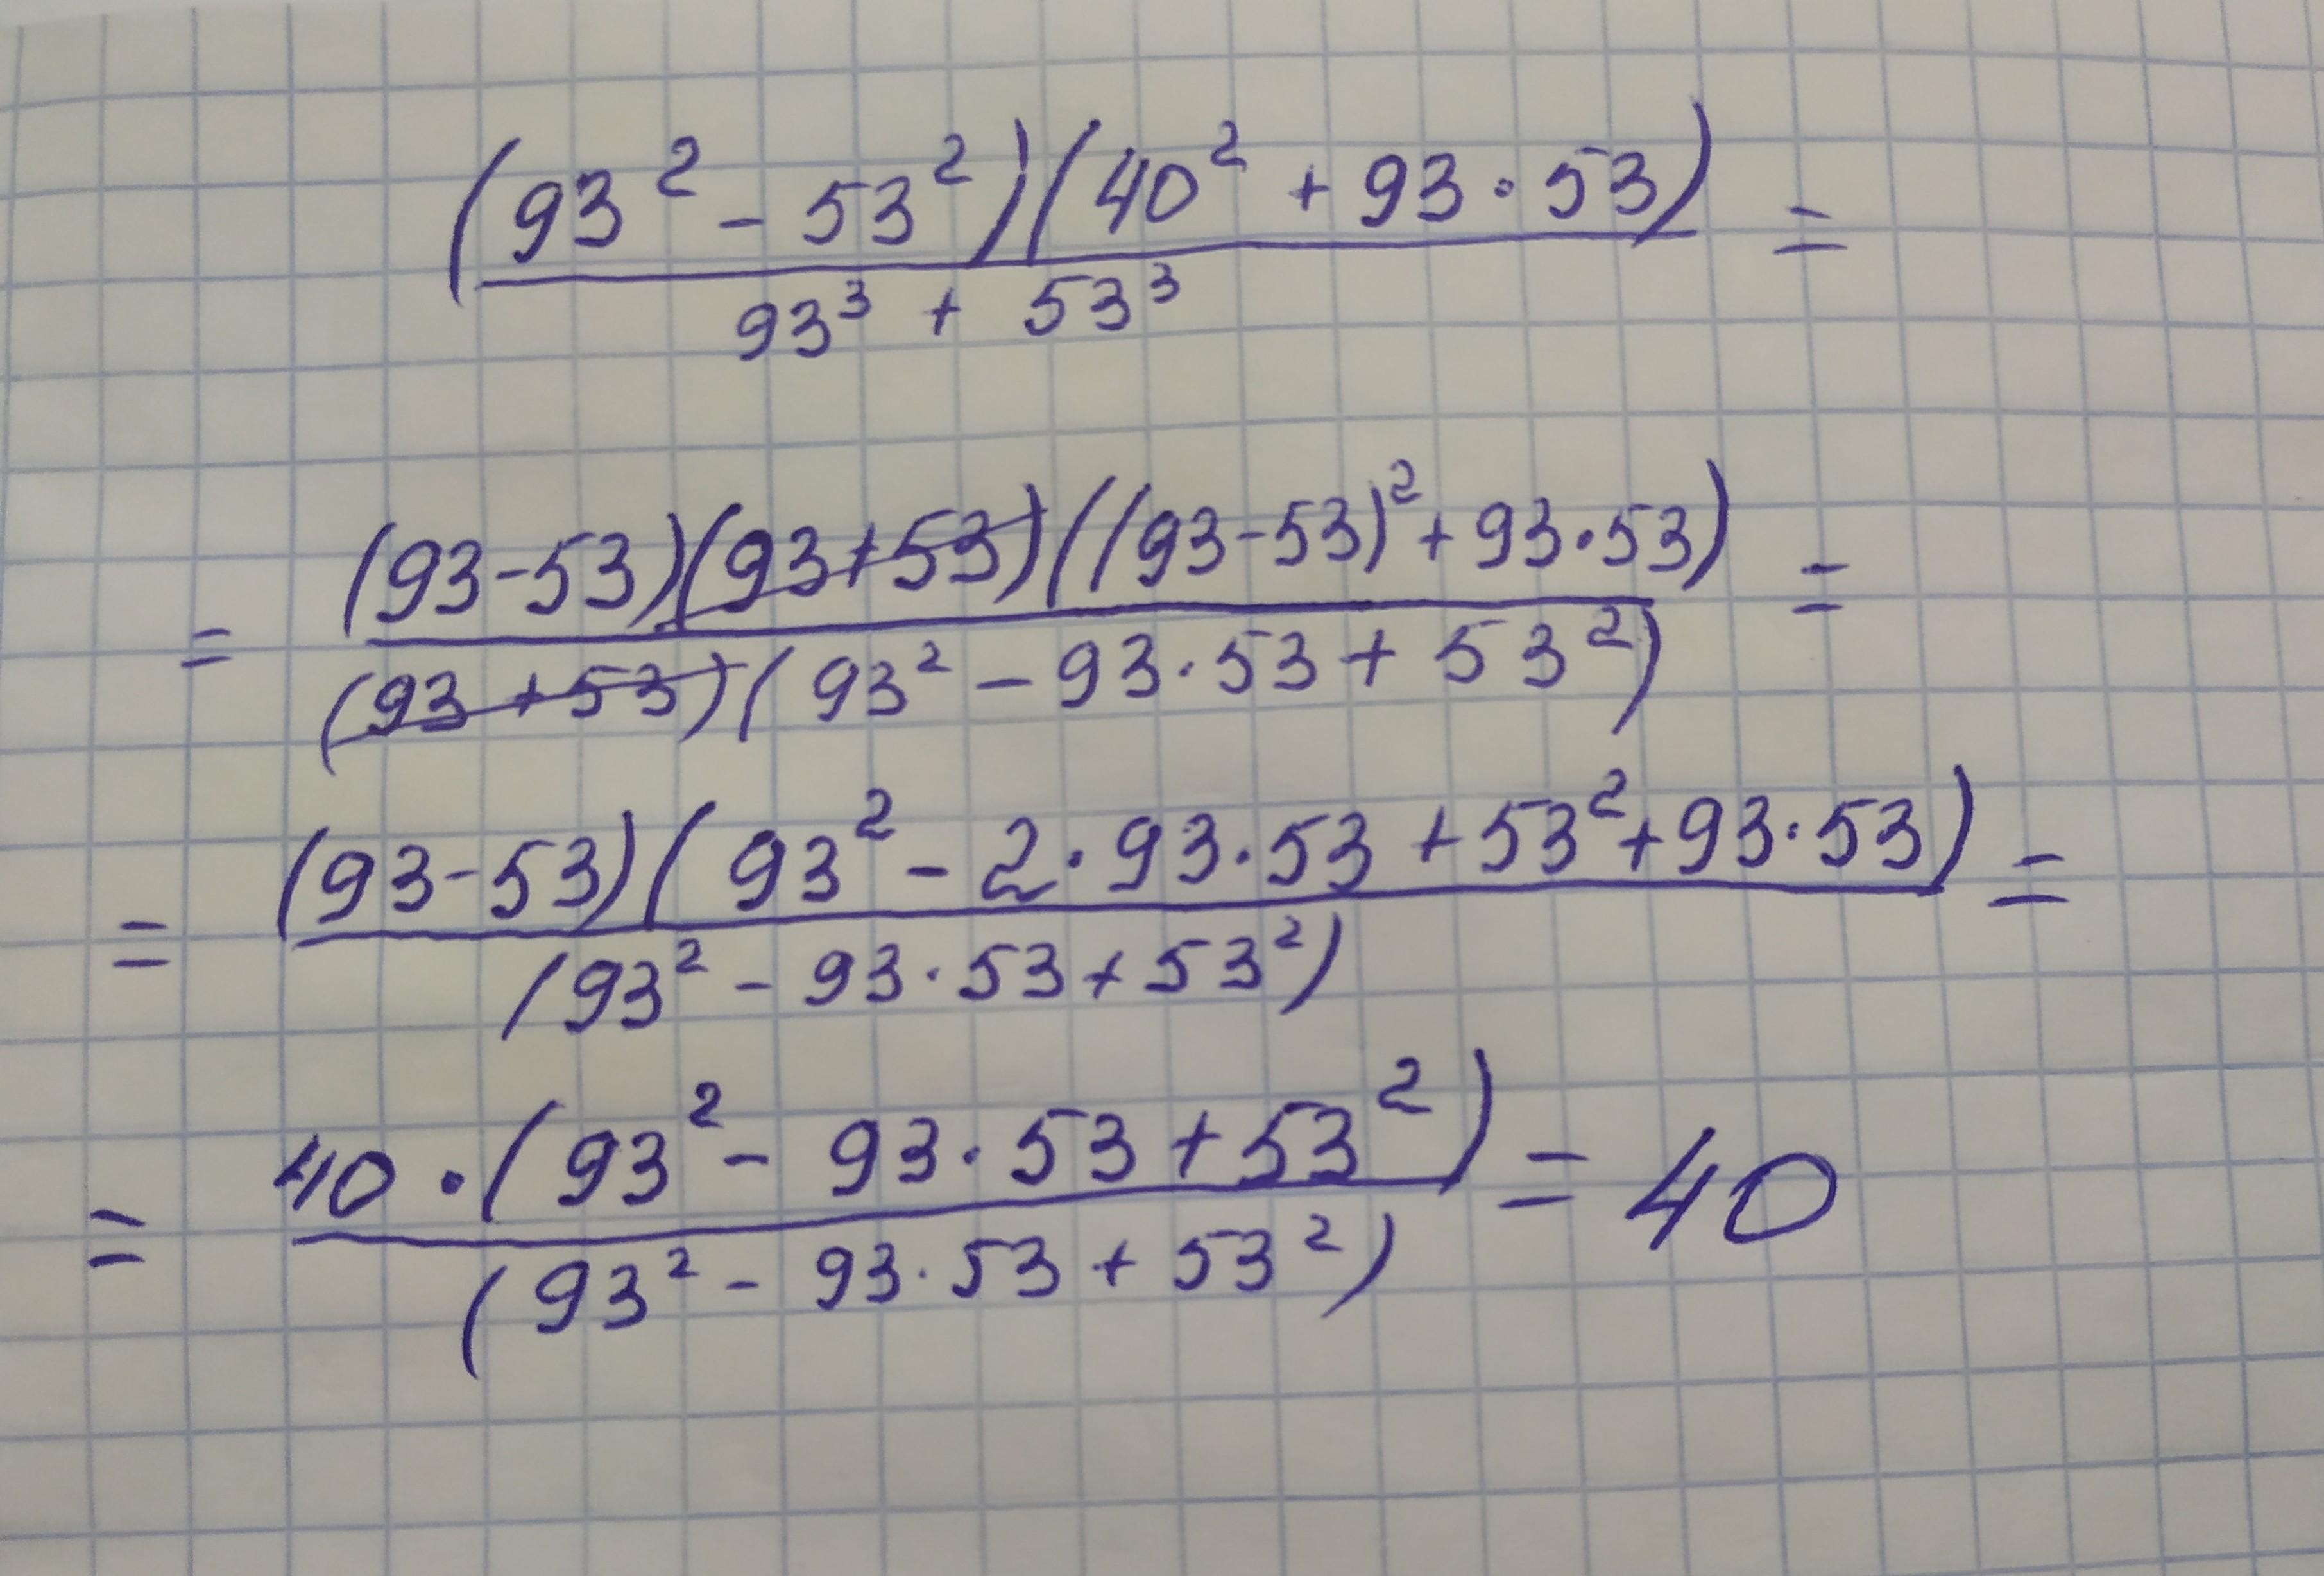 (93² - 53²)(40² + 93·53) =
93³ + 53³
= (93-53)(93+53)((93-53)²+93·53) =
(93+53)(93² - 93·53 + 53²)
= (93-53)(93² - 2·93·53 + 53² + 93·53) =
(93² - 93·53 + 53²)
= 40·(93² - 93·53 + 53²) = 40
(93² - 93·53 + 53²)